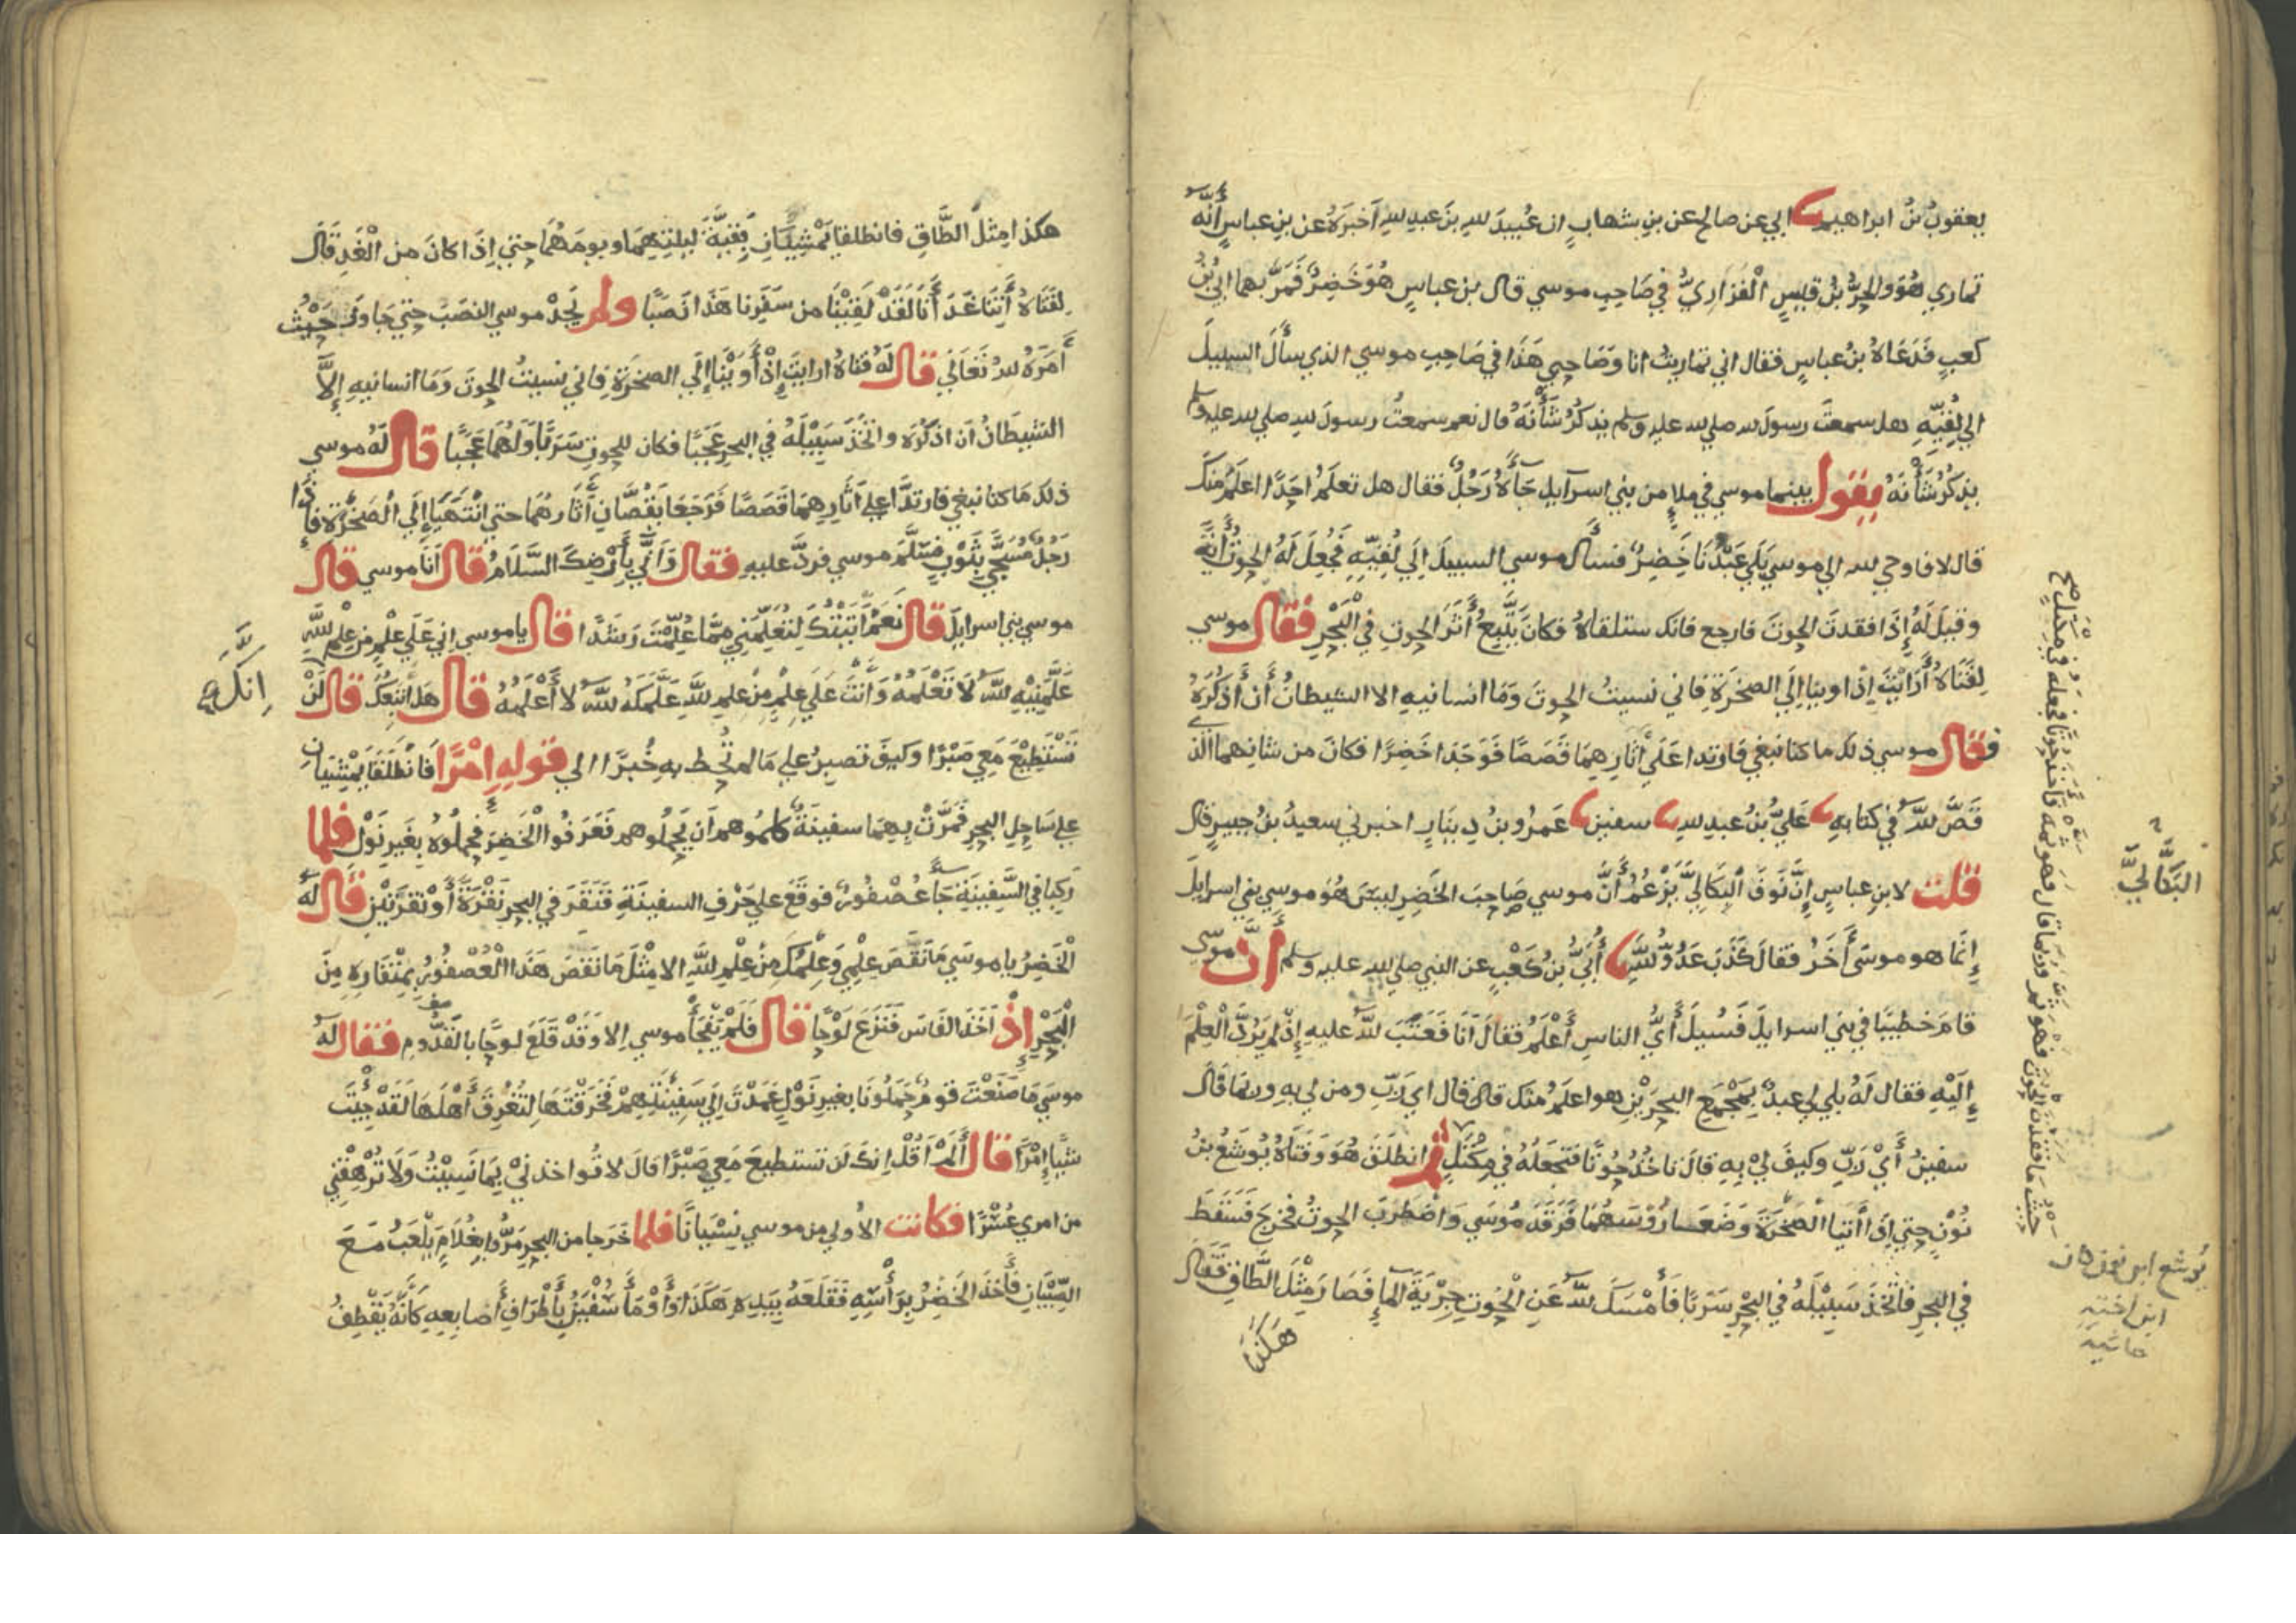 يعقوبُ بنُ ابراهيم ابي عن صالح عن بنِ شهابٍ ان عُبيدَ لله بنَ عبدِ لله اَخبرَهُ عن بنِ عباسٍ أنَّهُ
تماري هُوَ والحرُّ بنُ قيسٍ الْفَزَارِيُّ في صَاحِبِ موسي قال بن عباسٍ هُوَ خَضِرٌ فَمَرَّ بهما ابيُّ بْنُ
كعبٍ فَدَعَاهُ بنُ عباسٍ فقال اني تماريتُ انا وَصَاحِبي هَذَا في صَاحِبِ موسي الذي سأَلَ السبيلَ
الي لُقِيِّهِ هل سمعتَ رسولَ لله صلي لله عليه وسلم يذكُرُ شَأْنَهُ قال نعم سمعتُ رسولَ لله صلي لله عليه وسلم
يذكرُ شَأْنَهُ يقول بينما موسي في ملإٍ من بني اسرآيل جَآءَهُ رَجُلٌ فقال هل تعلمُ احَدًا اعلَمَ منكَ
قال لا فاوحي لله الي موسي بَلَي عَبْدُنَا خَضِرٌ فسأل موسي السبيلَ اِلَي لُقِيِّهِ فَجُعِلَ لَهُ الحوتُ أيَةً
وقيلَ لَهُ إِذَا فقدتَ الحوتَ فارجع فانك ستلقاهُ فكانَ يَتَّبِعُ أَثَرَ الحوتِ في الْبَحْرِ فقال موسي
لِفَتَاهُ أَرَأيْتَ اِذْ اوينا اِلَي الصخرَةِ فاني نسيتُ الحوتَ وَمَا انسانيهِ الا الشيطانُ أن أَذكُرَهُ
فقال موسي ذلك ما كنا نبغي فارتدا عَلَي أثارِهِمَا قَصَصًا فَوَجَدَا خَضِرًا فكانَ من شانهما الذي
قَصَّ للَّهُ في كتابِهِ عَليُّ بنُ عبدِ لله سفين عَمرُو بنُ دِينَارٍ اخبرني سعيدُ بنُ جبيرٍ قال
قلت لابنِ عباسٍ إِنَّ نَوفَ الْبِكَالِيَّ يَزْعُمُ أَنَّ موسي صَاحِبَ الخَضِرِ ليسَ هُوَ موسي بني اسرايلَ
إِنما هو موسَي أَخَرُ فقالَ كَذَبَ عَدُوُّ للَّهِ أُبَيُّ بنُ كَعْبٍ عن النبي صلي لله عليه وسلم أنّ موسي
قامَ خطيبًا في بني اسرايلَ فَسُيِلَ أَيُّ الناسِ أَعْلَمُ فقالَ اَنَا فَعَتَبَ للَّهُ عليهِ إِذْ لم يَرُدَّ الْعِلْمَ
إِلَيْهِ فقال لَهُ بلي لي عبدٌ بِمَجْمَعِ البحرَيْنِ هوا علَمُ منك قال قال اي رَبِّ ومن لي بهِ وربما قال
سفينُ أَيْ رَبِّ وكيفَ لي بِهِ قالَ تاخُذُ حُوتًا فتجعَلُهُ في مِكْتَلٍ ثم انطَلَقَ هُوَ وَفَتَاهُ يُوشَعُ بنُ
نُوْنٍ حتي اِذَا أَتَيَا الصَّخْرَةَ وَضَعَا رُؤُسَهُمَا فَرَقَدَ مُوسَي وَاضْطَرَبَ الحوتُ فخرجَ فَسَقَطَ
في البحرِ فَاتَّخَذَ سَبِيْلَهُ في البَحْرِ سَرَبًا فَأَمْسَكَ للَّهُ عَنِ الْحُوتِ جِرْيَةَ الْمآءِ فَصَارَ مِثْلَ الطَّاقِ فقال
هكذا
البَكَّاليَّ
يُوشع ابن نون كان
ابن اخته
حاشية
هكذا مِثلُ الطَّاقِ فانطلقا يَمْشِيَانِ بَقِيَّةَ لَيلَتِهِمَا ويومَهُمَا حتي إِذَا كانَ من الْغَدِ قَالَ
لِفَتَاهُ أَتِنَا غَدَأَنَا لَقَدْ لَقِيْنَا من سَفَرِنا هَذَا نَصَبًا ولم يَجِدْ موسي النصَبَ حتي جاوزَ حَيْثُ
أَمَرَهُ للهُ تَعَالَي قال لَهُ فَتَاهُ ارايتَ إِذْ أَوَيْنَا إِلَي الصخرَةِ فاني نسيتُ الحوتَ وَمَا انسانيهِ إِلاَّ
الشيطَانُ اَن اذكُرَه واتَّخَذَ سَبِيْلَهُ في البحرِ عَجَبًا فكان للحوتِ سَرَبًا وَلَهُمَا عَجَبًا قال لَهُ موسي
ذلك مَا كنا نبغي فارتدَّا علي أثَارِهِمَا قَصَصًا فَرَجَعَا يَقُصَّانِ أَثَارهُمَا حتي انْتَهَيَا إِلَي الصَخْرَةِ فإِذَا
رَجُلٌ مُسَجًّي بِثَوْبٍ فسَلَّمَ موسي فردَّ عليهِ فقال وَأَنَّي بأَرْضِكَ السَّلَامُ قال أنَا موسي قال
موسي بني اسرايلَ قال نَعَمْ اَتَيْتُكَ لِتُعَلِّمَنِي مِمَّا عُلِّمْتَ رَشَدًا قال يا موسي اِنِي عَلَي عِلْمٍ مِن عِلمِ للَّهِ
عَلَّمَنِيْهِ للَّهُ لاَ تَعْلَمُهُ وَأَنتَ عَلي عِلْمٍ مِنْ علمِ للَّهِ عَلَّمَكَهُ للَّهُ لا أَعْلَمُهُ قال هَل اَتَّبِعُكَ قال لَنْ
تَسْتَطِيْعَ مَعِيَ صَبْرًا وكيفَ تصبرُ علي مَا لم تُحِط بِهِ خُبرًا الي قولِهِ إِمْرًا فَانْطَلَقَا يَمْشِيَانِ
علي سَاحِلِ البحرِ فَمَرَّتْ بِهِمَا سفينَةٌ كلموهم اَن يَحْمِلُوهم فَعَرَفُوا الْخَضِرَ فحملُوهُ بِغَيرِ نَوْلٍ فلما
رَكِبَا في السَّفِينَةِ جَآءَ عُصْفُورٌ فوقَعَ علي حَرْفِ السفينَةِ فَنَقَرَ في البحرِ نَقْرَةً أَوْ نَقْرَتَيْنِ قال لَهُ
الْخَضِرُ يا موسَي مَا نَقَصَ عِلْمِي وَعِلْمُكَ مِنْ عِلْمِ للَّهِ الا مِثْلَ مَا نَقَصَ هَذَا الْعُصْفُورُ بِمِنْقَارِهِ مِنَ
الْبَحْرِ إِذْ اَخَذَ الفَاسَ فَنَزَعَ لَوْحًا قال فَلَمْ يَفْجَأْ موسي اِلا وَقَدْ قَلَعَ لوحًا بالقَدُّومِ فقال لَهُ
موسَي مَا صَنَعْتَ قومٌ حَمَلُونَا بغيرِ نَوْلٍ عَمَدْتَ اِلَي سَفِيْنَتِهِمْ فَخَرَقْتَهَا لِتُغْرِقَ أَهْلَهَا لَقَدْ جِيْتَ
شيًا إِمْرًا قال أَلَمْ اَقُلْ اِنكَ لَن تستطيعَ مَعِيَ صَبْرًا قَالَ لا تُواخذنِيْ بِمَا نَسِيْتُ وَلَا تُرْهِقْنِي
من امري عُسْرًا فكانت الأُولَي من موسي نِسْيَانًا فلما خَرَجا من البحرِ مَرُّوا بِغُلَامٍ يَلْعَبُ مَعَ
الصِّبْيَانِ فَأَخَذَ الْخَضِرُ بِرَأْسِهِ فَقَلَعَهُ بِيَدِهِ هَكَذَا وَأَوْمَأَ سُفْيَنُ بِأَطْرَافِ أَصابِعِهِ كَأَنَّهُ يَقْطِفُ
اِنكَ